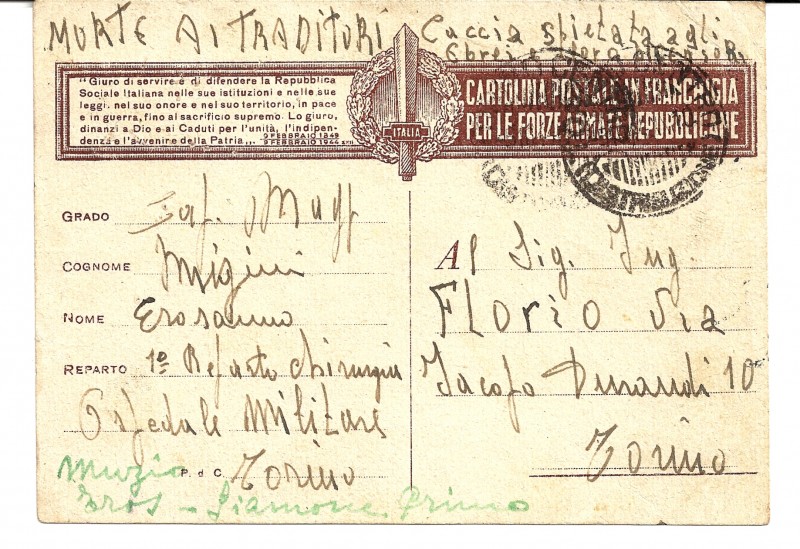 MORTE AI TRADITORI
Caccia spietata agli
Ebrei e loro
"Giuro di servire e di difendere la Repubblica
Sociale Italiana nelle sue istituzioni e nelle sue
leggi, nel suo onore e nel suo territorio, in pace
e in guerra, fino al sacrificio supremo. Lo giuro,
dinanzi a Dio e ai Caduti per l'unità, l'indipen-
denza e l'avvenire della Patria„.
9 FEBBRAIO 1849
9 FEBBRAIO 1944 XXII
ITALIA
CARTOLINA POSTALE IN FRANCHIGIA
PER LE FORZE ARMATE REPUBBLICANE
GRADO Magg
COGNOME Migini
NOME Erosanno
REPARTO 1º Reparto Chirurgia
Ospedale Militare
P. d C. Torino
Muzio
Eros - Giamone Primo
Al Sig. Ing.
Florio Via
Jacopo Durandi 10
Torino